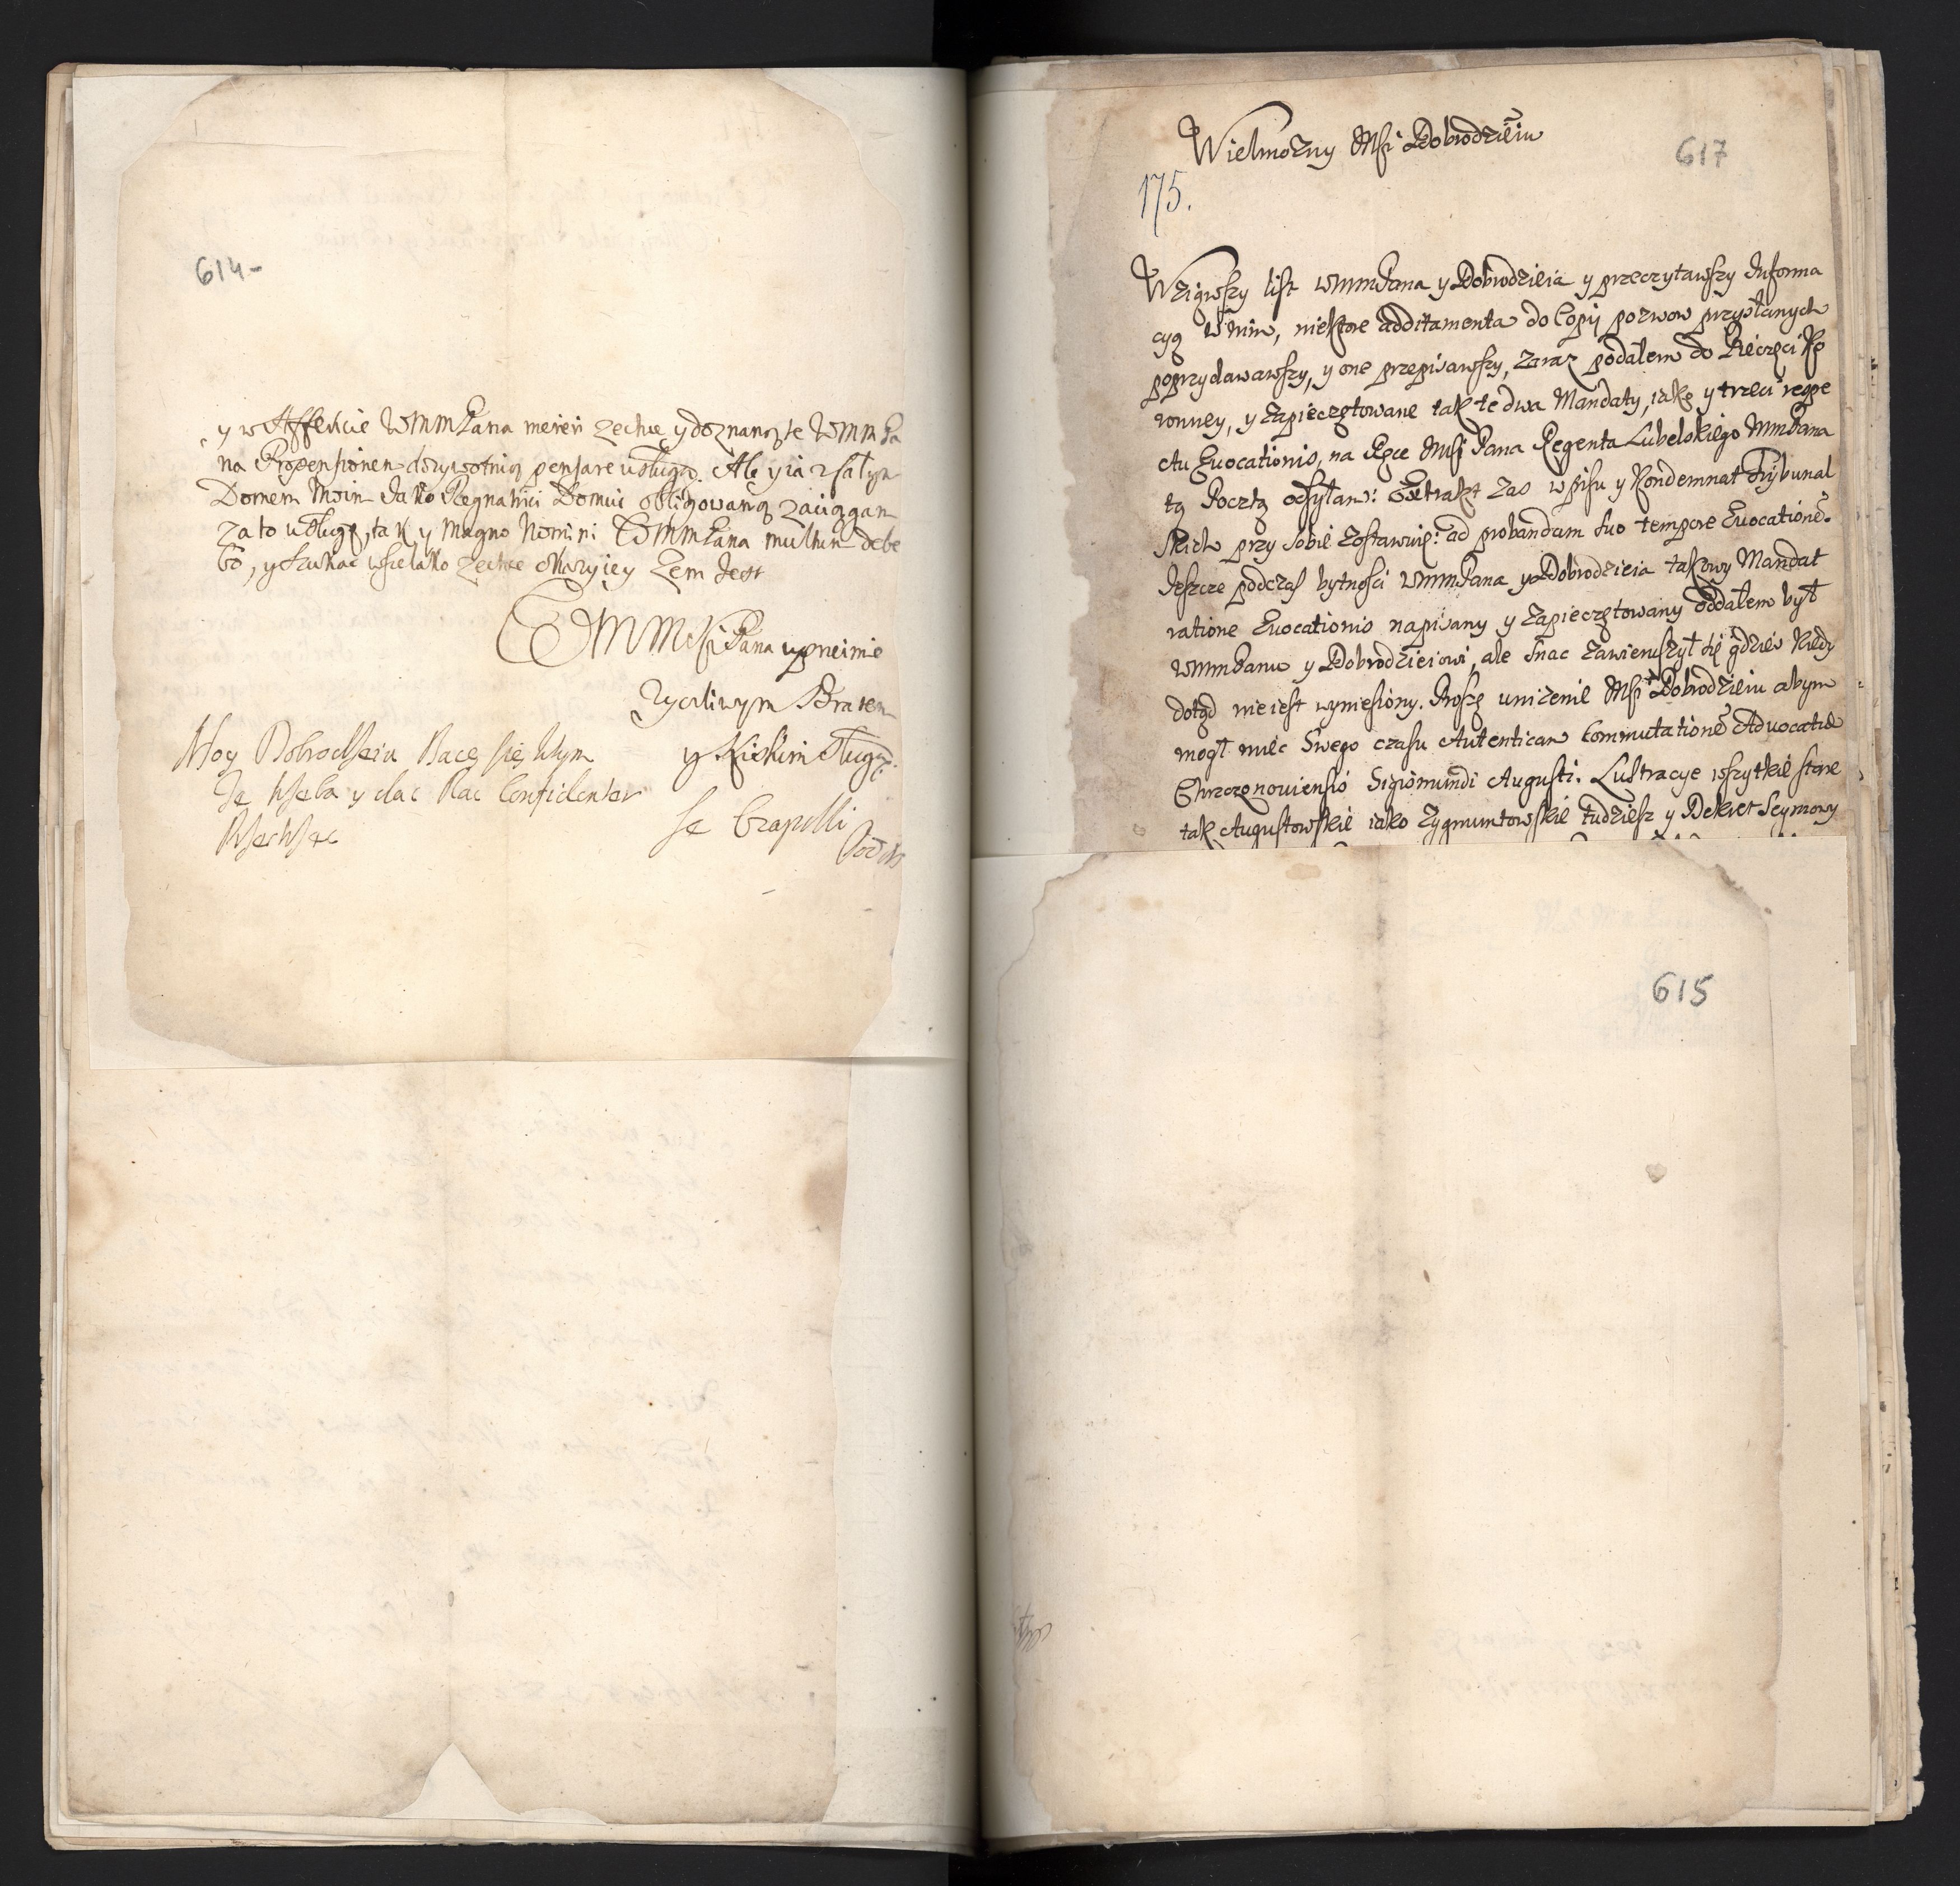 614-
y w Affekcie WMMPana mieiri zechce y doznaną te WMMPa
na Propensionem dozywotnią pensare usługą. Ale y ia z całym
Domem Moim Jako Pregnatrici Domui obligowaną zaciągam
za to usługę, tak y Magno Nomini WMMPana multum debe
bo, y szukac wszelako zechce okazyiey Zem Jest
WMMsPana uprzeimie
Zycliwym Bratem
y Niskim sługą.
Moy Dobrodzieiu Racz się
y dac Rac Confidenter
Se
617
Wielmozny MsPi Dobrodzieiu
175.
Wziąwszy list WMMPana y Dobrodzieia y przeczytawszy Informa
cyą w nim, niektore additamenta do Copij pozwow przysłanych
poprzydawawszy, y one przepisawszy, zaraz podałem do Pieczęci Ko
ronney, y zapieczętowane tak te dwa Mandaty, iako y trzeci respe
ctu Evocationis, na Ręce MsPi Pana Regenta Lubelskiego MmPana
tą Pocztą odsyłam: Extrakt zas wpisu y Kondemnat Trybunal
skich przy sobie zostawuię: ad probandam suo tempore Evocatione.
Jeszcze podczas bytnosci WMMPana y Dobrodzieia takowy Mandat
ratione Evocationis napisany y zapieczętowany oddałem był
WMMPanu y Dobrodzieiowi, ale snac zawieruszył się gdzies kiedy
dotąd nie iest wyniesiony. Proszę unizenie MsPi Dobrodzieiu abym
mogł miec Swego czasu Autenticam Commutatione Advocatiæ
Chrzczonoviensis Sigismundi Augusti. Lustracye wszytkie stare
tak Augustowskie iako Zygmuntowskie tudziesz y Dekret Seymowy
615